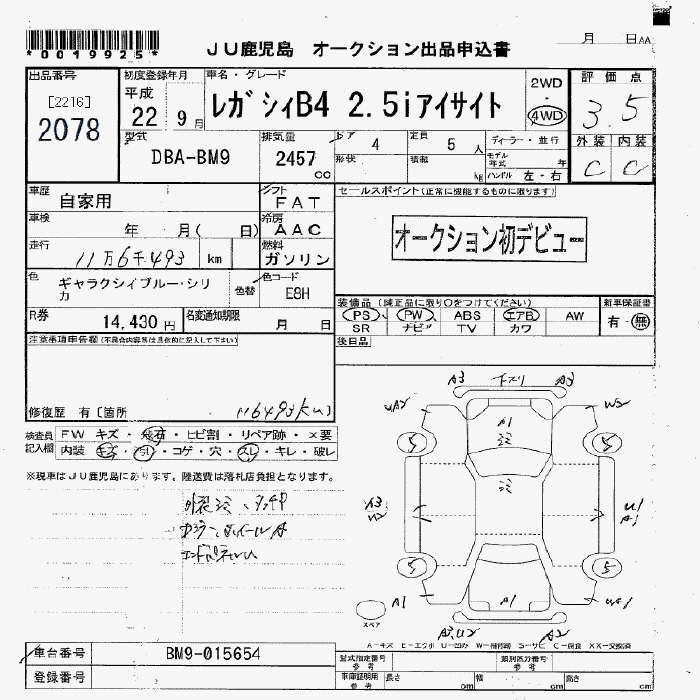 *0019925*
JU鹿児島 オークション出品申込書
月 日 AA
出品番号
[2216]
2078
初度登録年月
平成
22 9月
車名・グレード
レガシィB4 2.5iアイサイト
2WD
・
4WD
評価点
3.5
外装 内装
C C
型式
DBA-BM9
排気量
2457
cc
ドア
4
形状
定員
5人
積載
kg
ディーラー・並行
モデル年式 年
ハンドル 左・右
車歴
自家用
シフト
FAT
車検
年 月( 日)
冷房
AAC
走行
11万6千493 km
燃料
ガソリン
色
ギャラクシィブルー・シリカ
色替
色コード
E8H
R券
14,430円
名変通知期限
月 日
セールスポイント(正常に機能するものに限ります)
オークション初デビュー
装備品(純正品に限り○をつけてください)
PS PW ABS エアB AW
SR ナビ TV カワ
新車保証書
有・無
後日品
注意事項申告欄(不具合内容等は具体的に記入して下さい)
修復歴 有〔箇所
116493km
検査員記入欄
FW キズ・飛石・ヒビ割・リペア跡・×要
内装 キズ・汚れ・コゲ・穴・スレ・キレ・破レ
※税車はJU鹿児島にあります。陸送費は落札店負担となります。
A3 下スリ A3
W2
A1
5 5
A3
U2
U1
A1
5 5
A1 A1
スペア
A3.U2 A2
A-キズ E-エクボ U-凹み W-補修跡 S-サビ C-腐食 XX-交換済
車台番号
BM9-015654
登録番号
型式指定番号
参考
類別区分番号
参考
車庫証明用
参考
長さ cm
幅 cm
高さ cm